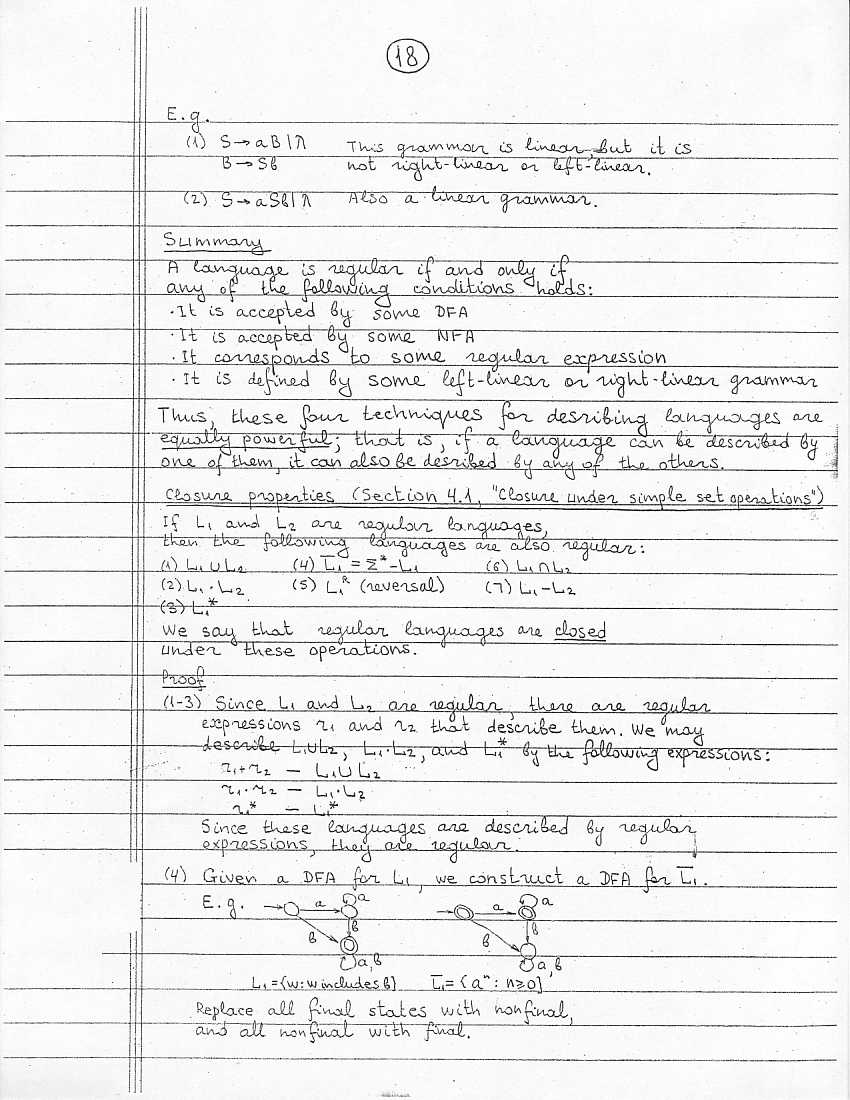 18
E.g.
(1) S→aB|λ This grammar is linear, but it is
B→Sb not right-linear or left-linear.
(2) S→aSb|λ Also a linear grammar.
Summary
A language is regular if and only if
any of the following conditions holds:
·It is accepted by some DFA
·It is accepted by some NFA
·It corresponds to some regular expression
·It is defined by some left-linear or right-linear grammar
Thus, these four techniques for desribing languages are
equally powerful; that is, if a language can be described by
one of them, it can also be desribed by any of the others.
Closure properties (Section 4.1, "Closure under simple set operations")
If L₁ and L₂ are regular languages,
then the following languages are also regular:
(1) L₁∪L₂ (4) L̅₁ = Σ*-L₁ (6) L₁∩L₂
(2) L₁·L₂ (5) L₁ᴿ (reversal) (7) L₁-L₂
(3) L₁*
We say that regular languages are closed
under these operations.
Proof
(1-3) Since L₁ and L₂ are regular, there are regular
expressions r₁ and r₂ that describe them. We may
describe L₁∪L₂, L₁·L₂, and L₁* by the following expressions:
r₁+r₂ — L₁∪L₂
r₁·r₂ — L₁·L₂
r₁* — L₁*
Since these languages are described by regular
expressions, they are regular.
(4) Given a DFA for L₁, we construct a DFA for L̅₁.
E.g. a a a a
b b b b
a,b a,b
L₁={w:w includes b} L̅₁={aⁿ: n≥0}
Replace all final states with nonfinal,
and all nonfinal with final.